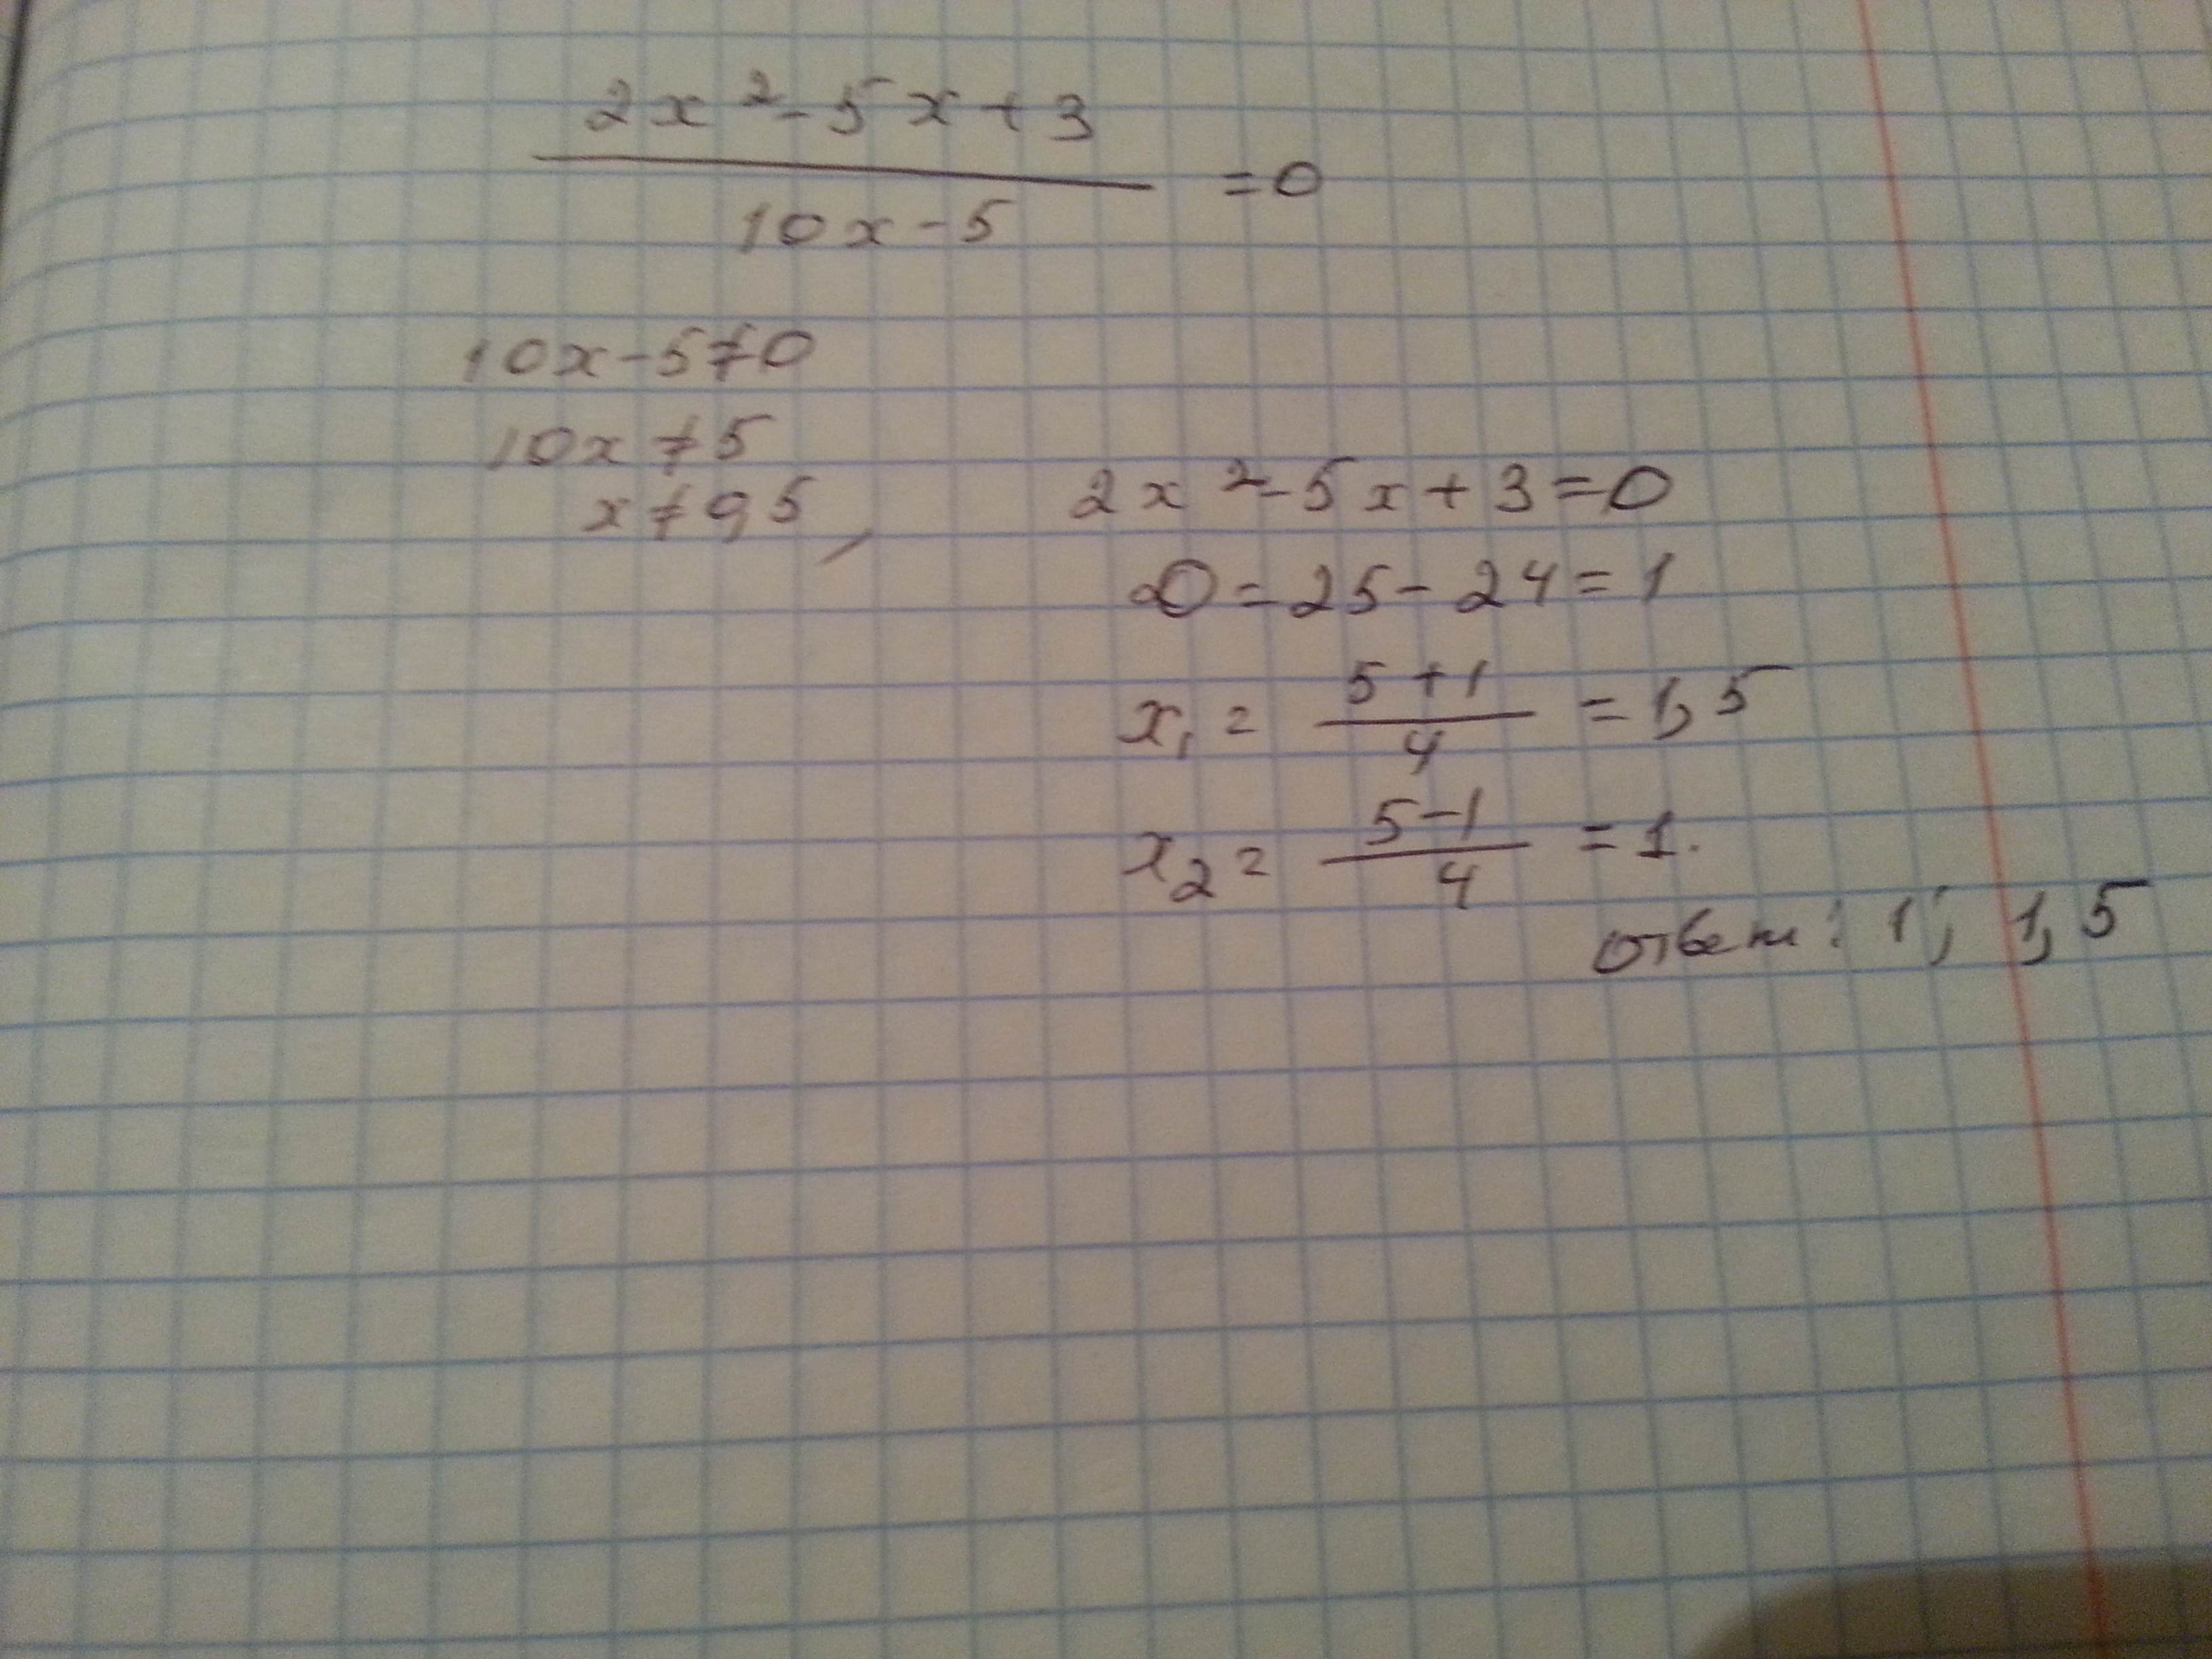 2x² - 5x + 3
10x - 5
= 0
10x - 5 ≠ 0
10x ≠ 5
x ≠ 0,5
2x² - 5x + 3 = 0
D = 25 - 24 = 1
x₁ = 5 + 1 / 4 = 1,5
x₂ = 5 - 1 / 4 = 1.
ответ: 1; 1,5